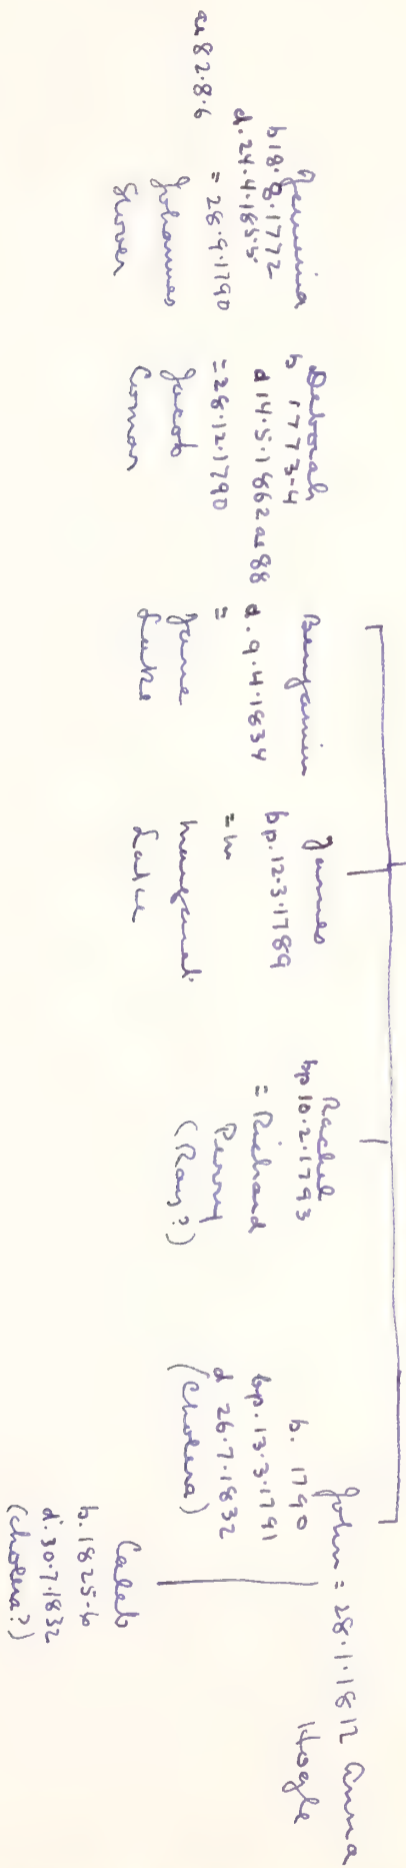 Jemima
b 18.8.1772
d. 24.4.1855
ae 82.8.6
= 28.9.1790
Johannes
Stover
Deborah
b 1773-4
d 14.5.1862 ae 88
= 28.12.1790
Jacob
Comar
Benjamin
d. 9.4.1834
=
Jane
Luke
James
bp. 12.3.1789
= w
Margaret
Luke
Rachel
bp 10.2.1793
= Richard
Perry
(Ray?)
John = 28.1.1812 Anna
Hogle
b. 1790
bp. 13.3.1791
d 26.7.1832
(Cholera)
Caleb
b. 1825-6
d. 30.7.1832
(cholera?)